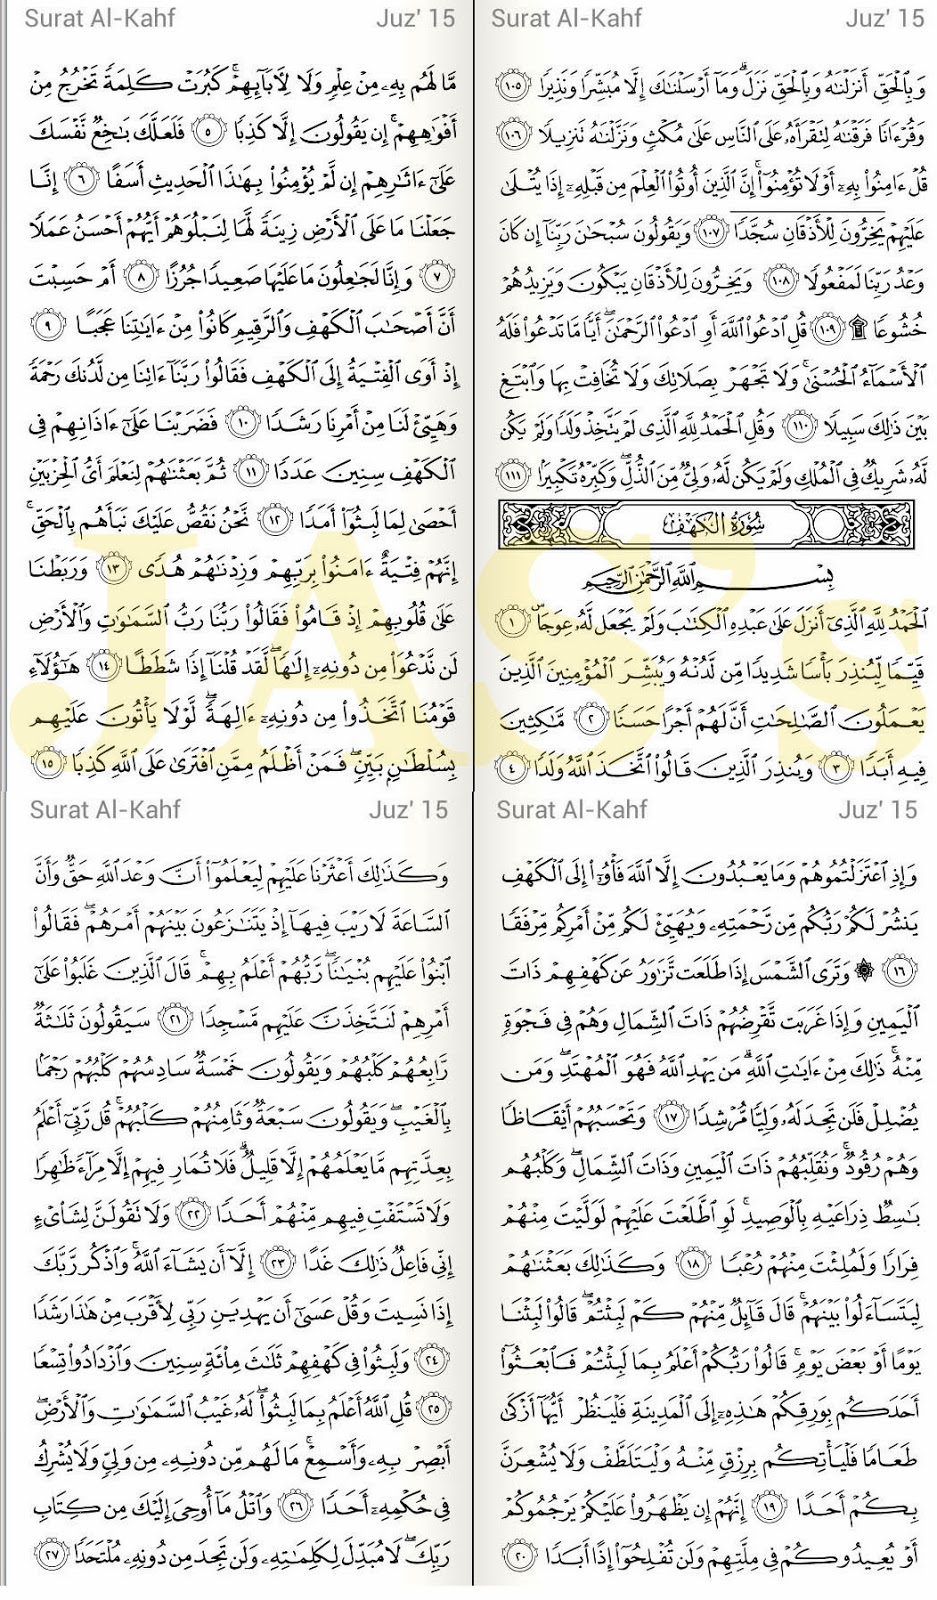 Surat Al-Kahf Juz' 15
وَبِٱلْحَقِّ أَنزَلْنَٰهُ وَبِٱلْحَقِّ نَزَلَ ۗ وَمَآ أَرْسَلْنَٰكَ إِلَّا مُبَشِّرًا وَنَذِيرًا ١٠٥
وَقُرْءَانًا فَرَقْنَٰهُ لِتَقْرَأَهُۥ عَلَى ٱلنَّاسِ عَلَىٰ مُكْثٍ وَنَزَّلْنَٰهُ تَنزِيلًا ١٠٦
قُلْ ءَامِنُوا۟ بِهِۦٓ أَوْ لَا تُؤْمِنُوٓا۟ ۚ إِنَّ ٱلَّذِينَ أُوتُوا۟ ٱلْعِلْمَ مِن قَبْلِهِۦٓ إِذَا يُتْلَىٰ
عَلَيْهِمْ يَخِرُّونَ لِلْأَذْقَانِ سُجَّدًا ١٠٧ وَيَقُولُونَ سُبْحَٰنَ رَبِّنَآ إِن كَانَ
وَعْدُ رَبِّنَا لَمَفْعُولًا ١٠٨ وَيَخِرُّونَ لِلْأَذْقَانِ يَبْكُونَ وَيَزِيدُهُمْ
خُشُوعًا ۩ ١٠٩ قُلِ ٱدْعُوا۟ ٱللَّهَ أَوِ ٱدْعُوا۟ ٱلرَّحْمَٰنَ ۖ أَيًّا مَّا تَدْعُوا۟ فَلَهُ
ٱلْأَسْمَآءُ ٱلْحُسْنَىٰ ۚ وَلَا تَجْهَرْ بِصَلَاتِكَ وَلَا تُخَافِتْ بِهَا وَٱبْتَغِ
بَيْنَ ذَٰلِكَ سَبِيلًا ١١٠ وَقُلِ ٱلْحَمْدُ لِلَّهِ ٱلَّذِى لَمْ يَتَّخِذْ وَلَدًا وَلَمْ يَكُن
لَّهُۥ شَرِيكٌ فِى ٱلْمُلْكِ وَلَمْ يَكُن لَّهُۥ وَلِىٌّ مِّنَ ٱلذُّلِّ ۖ وَكَبِّرْهُ تَكْبِيرًۢا ١١١
سُورَةُ الكَهْفِ
بِسْمِ ٱللَّهِ ٱلرَّحْمَٰنِ ٱلرَّحِيمِ
ٱلْحَمْدُ لِلَّهِ ٱلَّذِىٓ أَنزَلَ عَلَىٰ عَبْدِهِ ٱلْكِتَٰبَ وَلَمْ يَجْعَل لَّهُۥ عِوَجَا ۜ ١
قَيِّمًا لِّيُنذِرَ بَأْسًا شَدِيدًا مِّن لَّدُنْهُ وَيُبَشِّرَ ٱلْمُؤْمِنِينَ ٱلَّذِينَ
يَعْمَلُونَ ٱلصَّٰلِحَٰتِ أَنَّ لَهُمْ أَجْرًا حَسَنًا ٢ مَّٰكِثِينَ
فِيهِ أَبَدًا ٣ وَيُنذِرَ ٱلَّذِينَ قَالُوا۟ ٱتَّخَذَ ٱللَّهُ وَلَدًا ٤
Surat Al-Kahf Juz' 15
مَّا لَهُم بِهِۦ مِنْ عِلْمٍ وَلَا لِءَابَآئِهِمْ ۚ كَبُرَتْ كَلِمَةً تَخْرُجُ مِنْ
أَفْوَٰهِهِمْ ۚ إِن يَقُولُونَ إِلَّا كَذِبًا ٥ فَلَعَلَّكَ بَٰخِعٌ نَّفْسَكَ
عَلَىٰٓ ءَاثَٰرِهِمْ إِن لَّمْ يُؤْمِنُوا۟ بِهَٰذَا ٱلْحَدِيثِ أَسَفًا ٦ إِنَّا
جَعَلْنَا مَا عَلَى ٱلْأَرْضِ زِينَةً لَّهَا لِنَبْلُوَهُمْ أَيُّهُمْ أَحْسَنُ عَمَلًا
٧ وَإِنَّا لَجَٰعِلُونَ مَا عَلَيْهَا صَعِيدًا جُرُزًا ٨ أَمْ حَسِبْتَ
أَنَّ أَصْحَٰبَ ٱلْكَهْفِ وَٱلرَّقِيمِ كَانُوا۟ مِنْ ءَايَٰتِنَا عَجَبًا ٩
إِذْ أَوَى ٱلْفِتْيَةُ إِلَى ٱلْكَهْفِ فَقَالُوا۟ رَبَّنَآ ءَاتِنَا مِن لَّدُنكَ رَحْمَةً
وَهَيِّئْ لَنَا مِنْ أَمْرِنَا رَشَدًا ١٠ فَضَرَبْنَا عَلَىٰٓ ءَاذَانِهِمْ فِى
ٱلْكَهْفِ سِنِينَ عَدَدًا ١١ ثُمَّ بَعَثْنَٰهُمْ لِنَعْلَمَ أَىُّ ٱلْحِزْبَيْنِ
أَحْصَىٰ لِمَا لَبِثُوٓا۟ أَمَدًا ١٢ نَّحْنُ نَقُصُّ عَلَيْكَ نَبَأَهُم بِٱلْحَقِّ ۚ
إِنَّهُمْ فِتْيَةٌ ءَامَنُوا۟ بِرَبِّهِمْ وَزِدْنَٰهُمْ هُدًى ١٣ وَرَبَطْنَا
عَلَىٰ قُلُوبِهِمْ إِذْ قَامُوا۟ فَقَالُوا۟ رَبُّنَا رَبُّ ٱلسَّمَٰوَٰتِ وَٱلْأَرْضِ
لَن نَّدْعُوَا۟ مِن دُونِهِۦٓ إِلَٰهًا ۖ لَّقَدْ قُلْنَآ إِذًا شَطَطًا ١٤ هَٰٓؤُلَآءِ
قَوْمُنَا ٱتَّخَذُوا۟ مِن دُونِهِۦٓ ءَالِهَةً ۖ لَّوْلَا يَأْتُونَ عَلَيْهِم
بِسُلْطَٰنٍۭ بَيِّنٍ ۖ فَمَنْ أَظْلَمُ مِمَّنِ ٱفْتَرَىٰ عَلَى ٱللَّهِ كَذِبًا ١٥
Surat Al-Kahf Juz' 15
وَإِذِ ٱعْتَزَلْتُمُوهُمْ وَمَا يَعْبُدُونَ إِلَّا ٱللَّهَ فَأْوُۥٓا۟ إِلَى ٱلْكَهْفِ
يَنشُرْ لَكُمْ رَبُّكُم مِّن رَّحْمَتِهِۦ وَيُهَيِّئْ لَكُم مِّنْ أَمْرِكُم مِّرْفَقًا
١٦ ۞ وَتَرَى ٱلشَّمْسَ إِذَا طَلَعَت تَّزَٰوَرُ عَن كَهْفِهِمْ ذَاتَ
ٱلْيَمِينِ وَإِذَا غَرَبَت تَّقْرِضُهُمْ ذَاتَ ٱلشِّمَالِ وَهُمْ فِى فَجْوَةٍ
مِّنْهُ ۚ ذَٰلِكَ مِنْ ءَايَٰتِ ٱللَّهِ ۗ مَن يَهْدِ ٱللَّهُ فَهُوَ ٱلْمُهْتَدِ ۖ وَمَن
يُضْلِلْ فَلَن تَجِدَ لَهُۥ وَلِيًّا مُّرْشِدًا ١٧ وَتَحْسَبُهُمْ أَيْقَاظًا
وَهُمْ رُقُودٌ ۚ وَنُقَلِّبُهُمْ ذَاتَ ٱلْيَمِينِ وَذَاتَ ٱلشِّمَالِ ۖ وَكَلْبُهُم
بَٰسِطٌ ذِرَاعَيْهِ بِٱلْوَصِيدِ ۚ لَوِ ٱطَّلَعْتَ عَلَيْهِمْ لَوَلَّيْتَ مِنْهُمْ
فِرَارًا وَلَمُلِئْتَ مِنْهُمْ رُعْبًا ١٨ وَكَذَٰلِكَ بَعَثْنَٰهُمْ
لِيَتَسَآءَلُوا۟ بَيْنَهُمْ ۚ قَالَ قَآئِلٌ مِّنْهُمْ كَمْ لَبِثْتُمْ ۖ قَالُوا۟ لَبِثْنَا
يَوْمًا أَوْ بَعْضَ يَوْمٍ ۚ قَالُوا۟ رَبُّكُمْ أَعْلَمُ بِمَا لَبِثْتُمْ فَٱبْعَثُوٓا۟
أَحَدَكُم بِوَرِقِكُمْ هَٰذِهِۦٓ إِلَى ٱلْمَدِينَةِ فَلْيَنظُرْ أَيُّهَآ أَزْكَىٰ
طَعَامًا فَلْيَأْتِكُم بِرِزْقٍ مِّنْهُ وَلْيَتَلَطَّفْ وَلَا يُشْعِرَنَّ
بِكُمْ أَحَدًا ١٩ إِنَّهُمْ إِن يَظْهَرُوا۟ عَلَيْكُمْ يَرْجُمُوكُمْ
أَوْ يُعِيدُوكُمْ فِى مِلَّتِهِمْ وَلَن تُفْلِحُوٓا۟ إِذًا أَبَدًا ٢٠
Surat Al-Kahf Juz' 15
وَكَذَٰلِكَ أَعْثَرْنَا عَلَيْهِمْ لِيَعْلَمُوٓا۟ أَنَّ وَعْدَ ٱللَّهِ حَقٌّ وَأَنَّ
ٱلسَّاعَةَ لَا رَيْبَ فِيهَآ إِذْ يَتَنَٰزَعُونَ بَيْنَهُمْ أَمْرَهُمْ ۖ فَقَالُوا۟
ٱبْنُوا۟ عَلَيْهِم بُنْيَٰنًا ۖ رَّبُّهُمْ أَعْلَمُ بِهِمْ ۚ قَالَ ٱلَّذِينَ غَلَبُوا۟ عَلَىٰٓ
أَمْرِهِمْ لَنَتَّخِذَنَّ عَلَيْهِم مَّسْجِدًا ٢١ سَيَقُولُونَ ثَلَٰثَةٌ
رَّابِعُهُمْ كَلْبُهُمْ وَيَقُولُونَ خَمْسَةٌ سَادِسُهُمْ كَلْبُهُمْ رَجْمًۢا
بِٱلْغَيْبِ ۖ وَيَقُولُونَ سَبْعَةٌ وَثَامِنُهُمْ كَلْبُهُمْ ۚ قُل رَّبِّىٓ أَعْلَمُ
بِعِدَّتِهِم مَّا يَعْلَمُهُمْ إِلَّا قَلِيلٌ ۗ فَلَا تُمَارِ فِيهِمْ إِلَّا مِرَآءً ظَٰهِرًا
وَلَا تَسْتَفْتِ فِيهِم مِّنْهُمْ أَحَدًا ٢٢ وَلَا تَقُولَنَّ لِشَا۟ىْءٍ
إِنِّى فَاعِلٌ ذَٰلِكَ غَدًا ٢٣ إِلَّآ أَن يَشَآءَ ٱللَّهُ ۚ وَٱذْكُر رَّبَّكَ
إِذَا نَسِيتَ وَقُلْ عَسَىٰٓ أَن يَهْدِيَنِ رَبِّى لِأَقْرَبَ مِنْ هَٰذَا رَشَدًا
٢٤ وَلَبِثُوا۟ فِى كَهْفِهِمْ ثَلَٰثَ مِا۟ئَةٍ سِنِينَ وَٱزْدَادُوا۟ تِسْعًا
٢٥ قُلِ ٱللَّهُ أَعْلَمُ بِمَا لَبِثُوا۟ ۖ لَهُۥ غَيْبُ ٱلسَّمَٰوَٰتِ وَٱلْأَرْضِ ۖ
أَبْصِرْ بِهِۦ وَأَسْمِعْ ۚ مَا لَهُم مِّن دُونِهِۦ مِن وَلِىٍّ وَلَا يُشْرِكُ
فِى حُكْمِهِۦٓ أَحَدًا ٢٦ وَٱتْلُ مَآ أُوحِىَ إِلَيْكَ مِن كِتَابِ
رَبِّكَ ۖ لَا مُبَدِّلَ لِكَلِمَٰتِهِۦ وَلَن تَجِدَ مِن دُونِهِۦ مُلْتَحَدًا ٢٧
JAS's